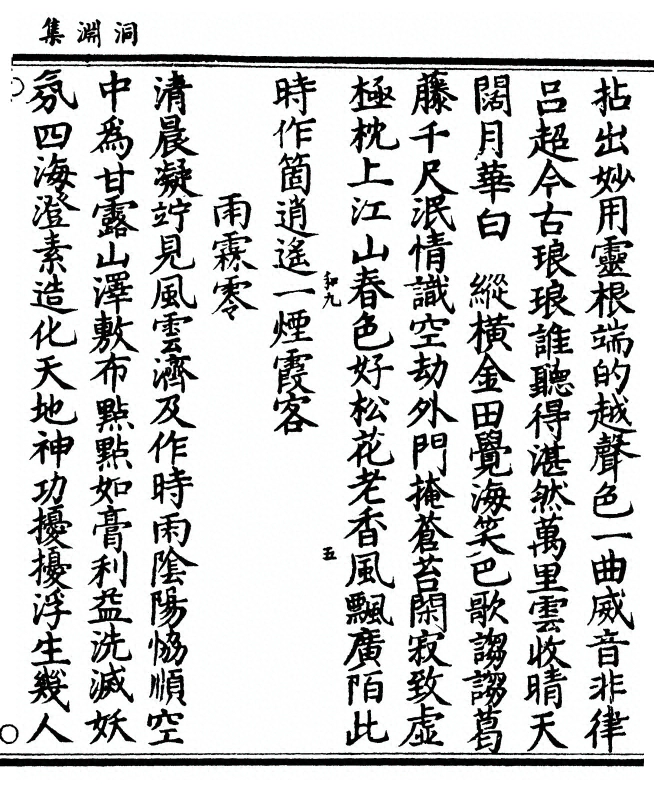 洞淵集
拈出妙用靈根端的越聲色一曲威音非律
呂超今古琅琅誰聽得湛然萬里雲收晴天
闊月華白　縱橫金田覺海笑巴歌謅謅葛
藤千尺泯情識空劫外門掩蒼苔閑寂致虛
極枕上江山春色好松花老香風飄廣陌此
和九
五
時作箇逍遙一煙霞客
雨霖零
清晨凝竚見風雲濟及作時雨陰陽恊順空
中爲甘露山澤敷布點點如膏利益洗滅妖
氛四海澄素造化天地神功擾擾浮生幾人